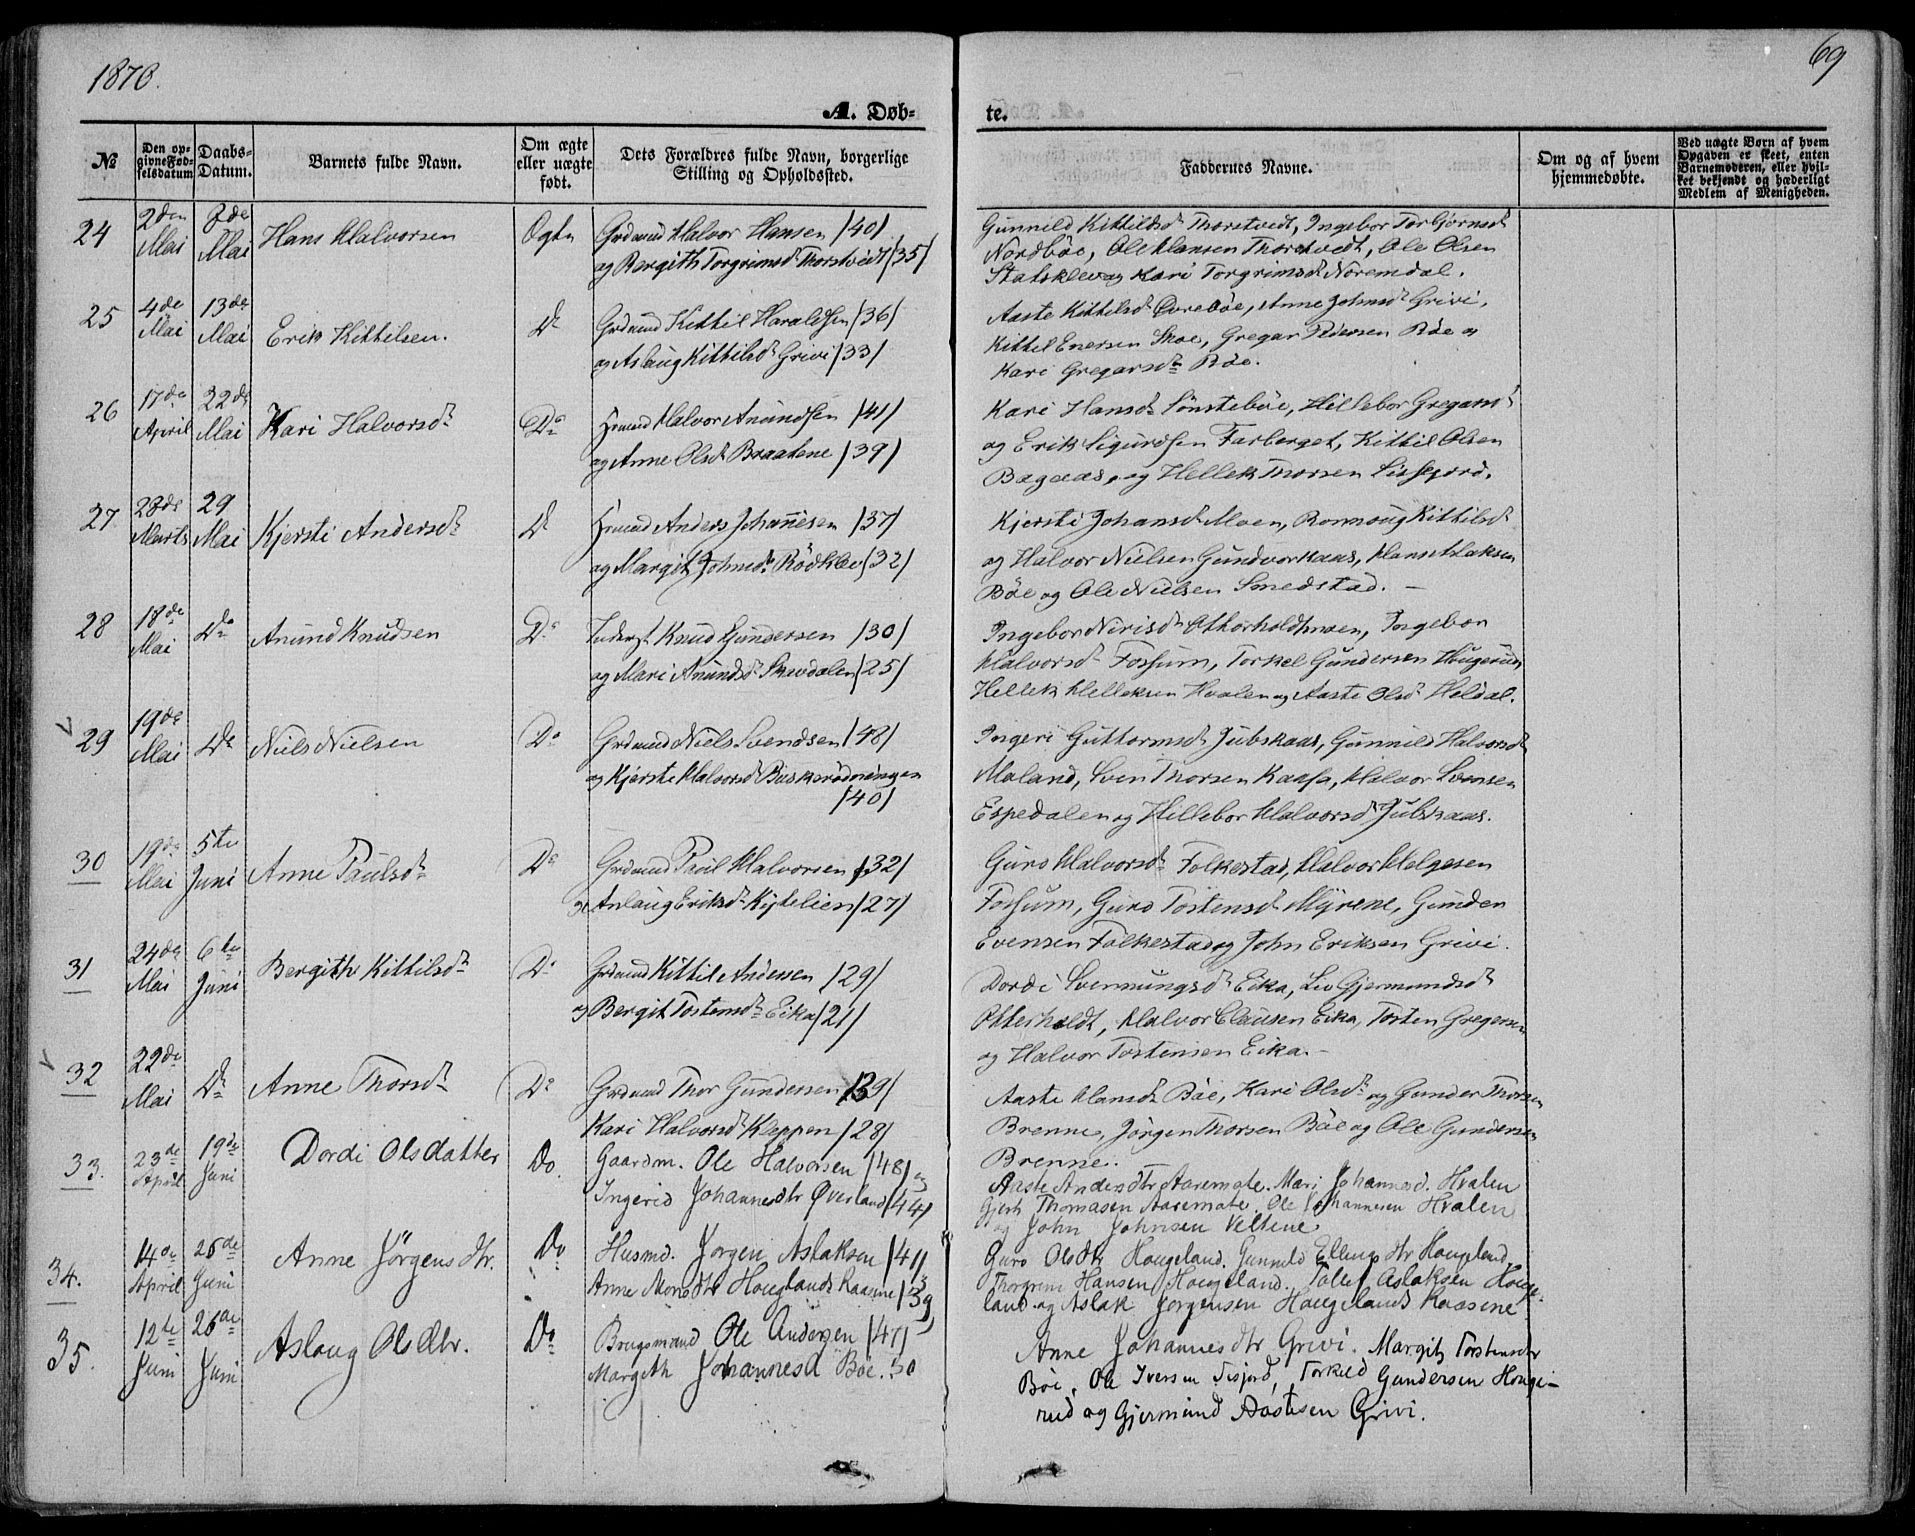 1870.
69
A. Døb-
te.
No
Den op-
givne Fød-
selsdatum
Daabs-
Datum.
Barnets fulde Navn.
Om ægte
eller uægte
født.
Dets Forældres fulde Navn, borgerlige
Stilling og Opholdssted.
Faddernes Navne.
Om og af hvem
hjemmedøbte.
Ved uægte Børn af hvem
Opgaven er skeet, enten
Barnemoderen, eller hvil-
ket bekjendt og hæderligt
Medlem af Menigheden.
24
2den Mai
8de Mai
Hans Halvorsen
Ægte
Grdmnd Halvor Hansen /40/
og Bergith Torgrimsd Thorstvedt /35/
Gunnild Kittilsd Thorstvedt, Ingebor Torbjørnsd
Nordbøe, Ole Hansen Thorstvedt, Ole Olsen
Statsklev og Kari Torgrimsd Noremdal.
25
4de Mai
13de Mai
Erik Kittilsen.
Do
Grdmnd Kittil Haraldsen /36/
og Aslaug Kittilsd Grivi /33/
Aaste Kittilsd Øvrebøe, Anne Johnsd Grivi,
Kittel Enersen Skoe, Gregar Pedersen Bøe og
Kari Gregarsd Bøe.
26
17de April
22de Mai
Kari Halvorsd
Do
Hmnd Halvor Anundsen /41/
og Anne Olsd Braatene /39/
Kari Hansd Sønstebøe, Hillebor Gregarsd
og Erik Sigurdsen Farberget, Kittil Olsen
Bagaas, og Hellek Thorsen Lissfjord.
27
28de Marts
29 Mai
Kjersti Andersd
Do
Hmnd Anders Johannesen /37/
og Margit Johnsd Rødklev /32/
Kjersti Johansd Moen, Ronnoug Kittilsd
og Halvor Nielsen Gundvorkaas, Hans Aslaksen
Bøe og Ole Nielsen Smedstad.
28
18de Mai
Do
Anund Knudsen
Do
Inderst Knud Gundersen /30/
og Mari Anundsd Skovdalen /25/
Ingebor Nirisd Otterholdtmoen, Ingebor
Halvorsd Fossum, Torkel Gundersen Hugerud
Hellek Helleksen Hvalen og Aaste Olsd Heldal.
29
19de Mai
Do
Niels Nielsen
Do
Grdmnd Niels Svendsen /48/
og Kjersti Halvorsd Buskerødningen
/40/
Ingeri Guttormsd Jubskaas, Gunnild Halvorsd
Moland, Sven Thorsen Kaasa, Halvor Svensen
Espedalen og Hillebor Halvorsd Jubskaas.
30
19de Mai
5te Juni
Anne Paulsd
Do
Grdmnd Poul Halvorsen /32/
og Anlaug Eriksd Kistelien /27/
Guro Halvorsd Folkestad, Halvor Helgesen
Fossum, Guro Tostensd Myrene, Gunder
Evensen Folkestad og John Eriksen Grivi.
31
24de Mai
6te Juni
Bergith Kittilsd
Do
Grdmnd Kittil Andersen /29/
og Bergit Tostensd Eika /21/
Dordi Svennungsd Eika, Liv Gjermundsd
Otterholdt, Halvor Clausen Eika, Tosten Gregersen
og Halvor Tostensen Eika.
32
22de Mai
Do
Anne Thorsd
Do
Grdmnd Thor Gundersen /39/
Kari Halvorsd Kleppen /28/
Aaste Hansd Bøe, Kari Olsd og Gunder Thorsen
Brenne, Jørgen Thorsen Bøe og Ole Gundersen
Brenne.
33.
23de April
19de Juni
Dordi Olsdatter
Do.
Gaardm. Ole Halvorsen /48/ og
Ingerid Johannesdtr Øverland /44/
Aaste Andersdtr Aaremote. Mari Johannesd. Hvalen
Gjert Thomasen Aaremote. Ole Johannesen Hvalen
og John Johnsen Veltene
34.
14de April
26de Juni
Anne Jørgensdtr.
Do
Husmd. Jørgen Aslaksen /41/
Anne Monsdtr Hougelands Kaasene /39/
Guro Olsdtr Hougeland. Gunnild Ellingsdtr Hougeland,
Thorgrim Hansen Hougeland. Tolef Aslaksen Houge-
land og Aslak Jørgensen Hougelands Kaasene
35.
12te Juni
26de Juni
Aslaug Olsdtr.
Do
Brugsmand Ole Andersen /47/
Margith Johannesd Bøe. 30
Anne Johannesdtr Grivi. Margit Torstensdtr
Bøe, Ole Iversen Tisjord, Torkild Gundersen Houge-
rud og Gjermund Aastesen Grivi.